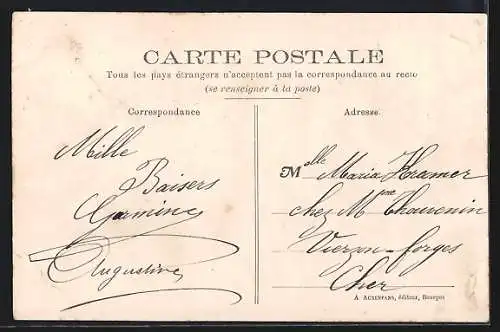 CARTE POSTALE
Tous les pays étrangers n'acceptent pas la correspondance au recto
(se renseigner à la poste)
Correspondance
Mille
Baisers
Germine
Augustine
Adresse.
Melle Maria Kramer
chez Mme Thauvenin
Vierzon-forges
Cher
A. AUXENFANS, éditeur, Bourges